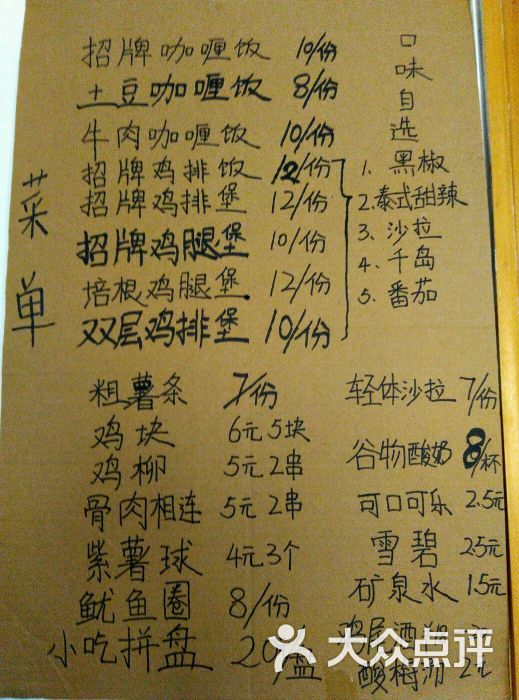 菜单
招牌咖喱饭 10/份
土豆咖喱饭 8/份
牛肉咖喱饭 10/份
招牌鸡排饭 12/份
招牌鸡排堡 12/份
招牌鸡腿堡 10/份
培根鸡腿堡 12/份
双层鸡排堡 10/份
口味自选
1. 黑椒
2. 泰式甜辣
3. 沙拉
4. 千岛
5. 番茄
粗薯条 7/份
鸡块 6元5块
鸡柳 5元2串
骨肉相连 5元2串
紫薯球 4元3个
鱿鱼圈 8/份
小吃拼盘 20/盘
轻体沙拉 7/份
谷物酸奶 8/杯
可口可乐 2.5元
雪碧 2.5元
矿泉水 1.5元
鸡尾酒
酸梅汤 2元
大众点评